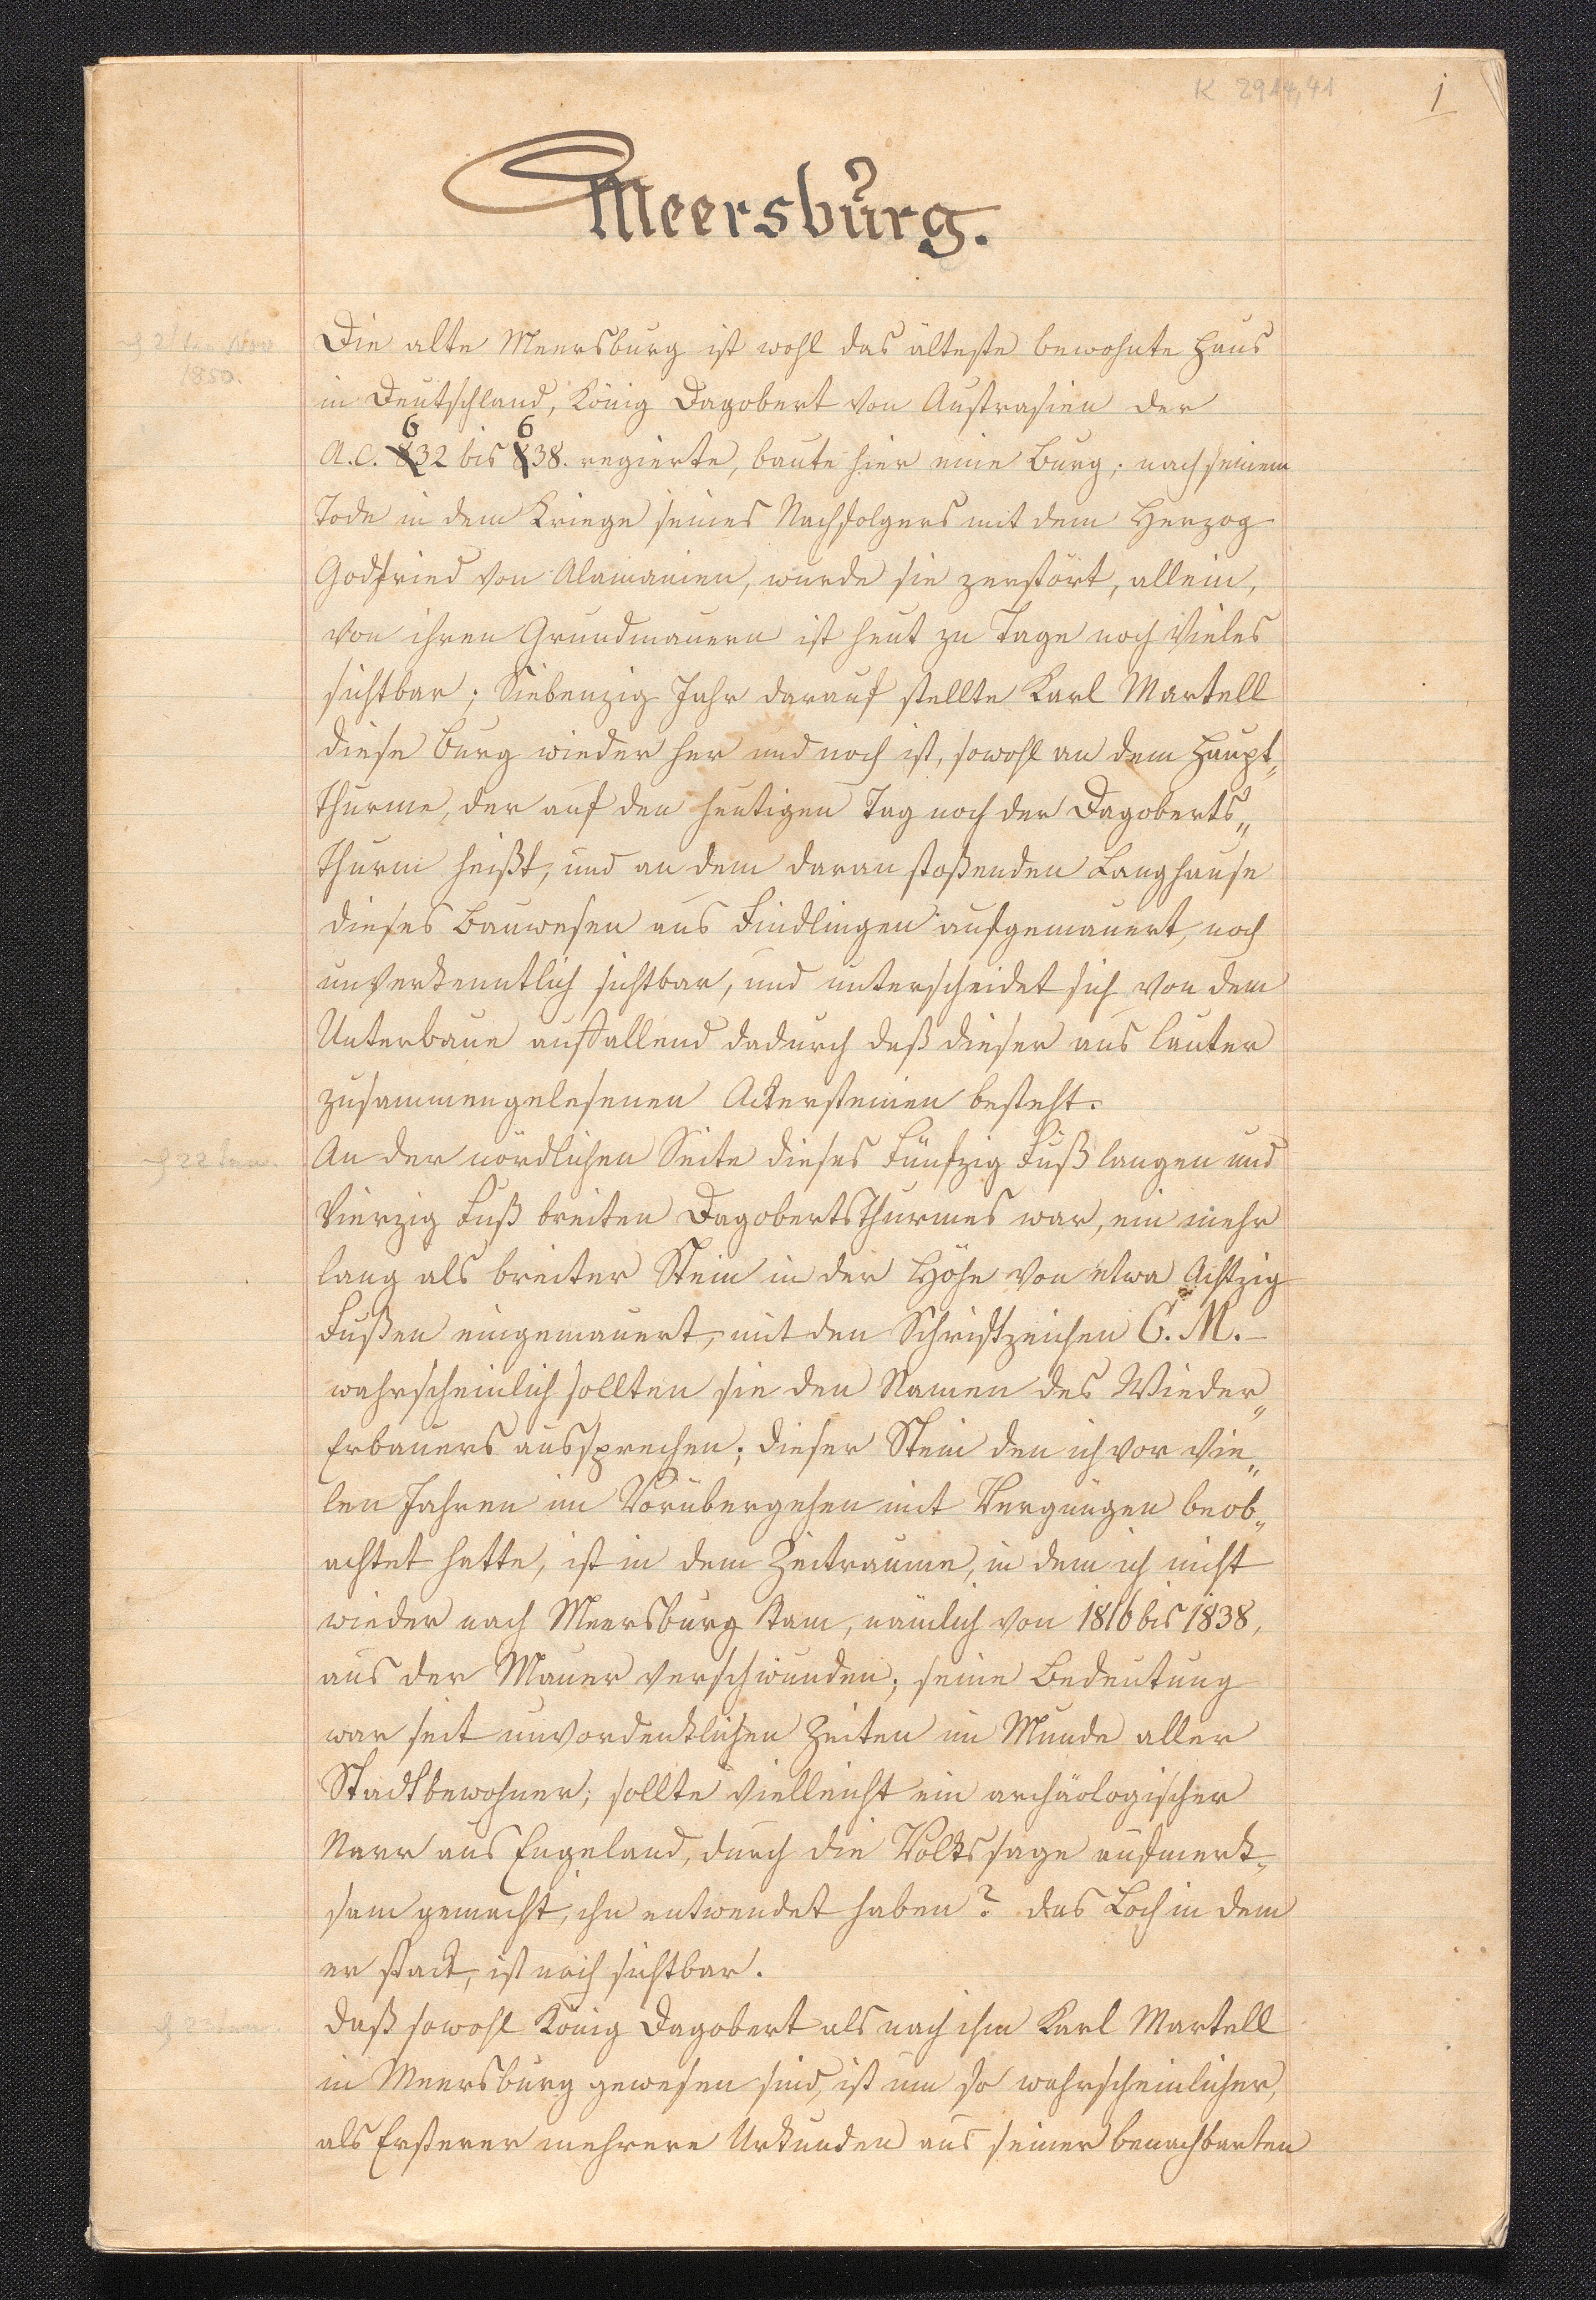 K 2914,41
1
Meersburg.
1850.
Die alte Meersburg ist wohl das älteste bewohnte Haus
in Deutschland, König Dagobert von Austrasien der
6 6
A.C. 832 bis 838. regierte, baute hier eine Burg; nach seinem
Tode in dem Kriege seines Nachfolgers mit dem Herzog
Godfried von Alamanien, wurde sie zerstört, allein,
von ihren Grundmauern ist heut zu Tage noch Vieles
sichtbar; Siebenzig Jahr darauf stellte Karl Martell
diese Burg wieder her und noch ist, sowohl an dem Haupt„
thurme, der auf den heutigen Tag noch der Dagoberts„
Thurm heißt, und an dem daran stoßenden Langhause
dieses Bauwesen aus Findlingen aufgemauert, noch
unverkenntlich sichtbar, und unterscheidet sich von dem
Unterbaue auffallend dadurch daß dieser aus lauter
zusammengelesenen Ackersteinen besteht.
An der nördlichen Seite dieses Fünfzig Fuß langen und
Vierzig Fuß breiten DagobertsThurmes war, ein mehr
lang als breiter Stein in der Höhe von etwa Achtzig
Fußen eingemauert, mit den Schriftzeichen C. M. –
wahrscheinlich sollten sie den Namen des Wieder„
Erbauers aussprechen; dieser Stein den ich vor vie„
len Jahren im Vorübergehen mit Vergnügen beob„
achtet hatte, ist in dem Zeitraume, in dem ich nicht
wieder nach Meersburg kam, nämlich von 1816 bis 1838,
aus der Mauer verschwunden; seine Bedeutung
war seit unvordenklichen Zeiten im Munde aller
Stadtbewohner; sollte vielleicht ein archäologischer
Narr aus Engeland, durch die Volkssage aufmerk„
sam gemacht, ihn entwendet haben? das Loch in dem
er stack, ist noch sichtbar.
Daß sowohl König Dagobert als nach ihm Karl Martell
in Meersburg gewesen sind, ist um so wahrscheinlicher,
als Ersterer mehrere Urkunden aus seiner benachbarten